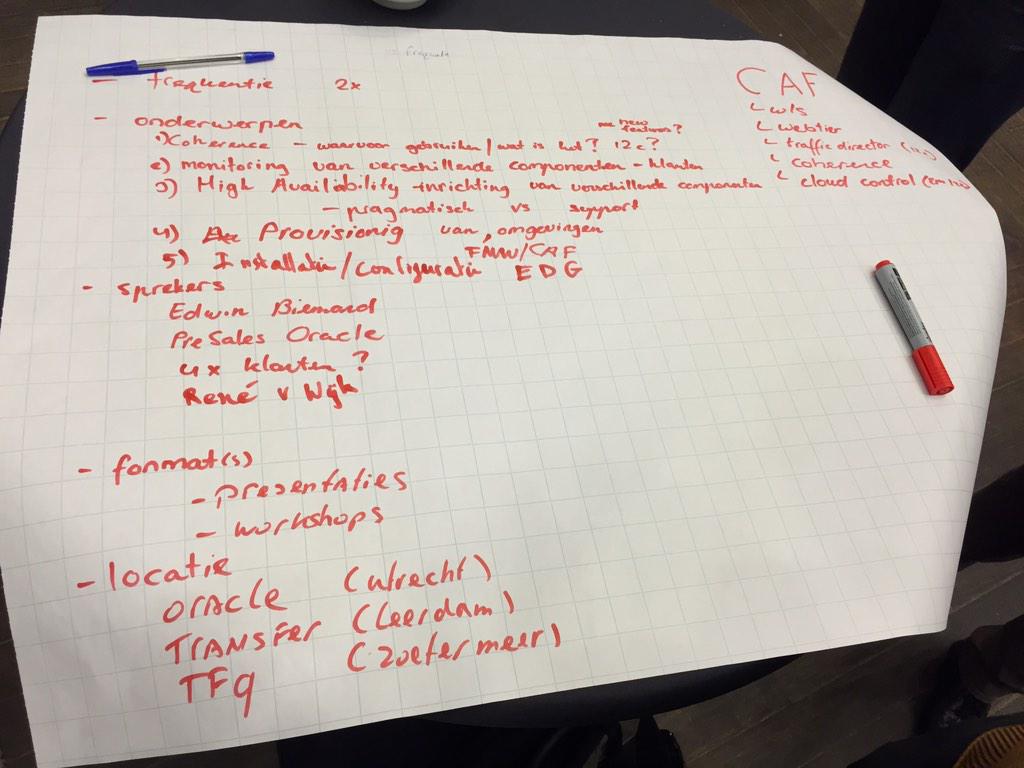 - frequentie 2x
- onderwerpen
1) Coherence - waarvoor gebruiken/wat is het? 12c? new features?
2) monitoring van verschillende componenten - klanten
3) High Availability -inrichting van verschillende componenten
- pragmatisch vs support
4) Provisionig van omgevingen
FMW/CAF
5) Installatie/Configuratie EDG
- sprekers
Edwin Biemond
PreSales Oracle
4x klanten?
René v Wijk
- format(s)
- presentaties
- workshops
- locatie
ORACLE (utrecht)
TRANSFER (Leerdam)
TFq (zoetermeer)
CAF
wls
webtier
traffic director
coherence
cloud control